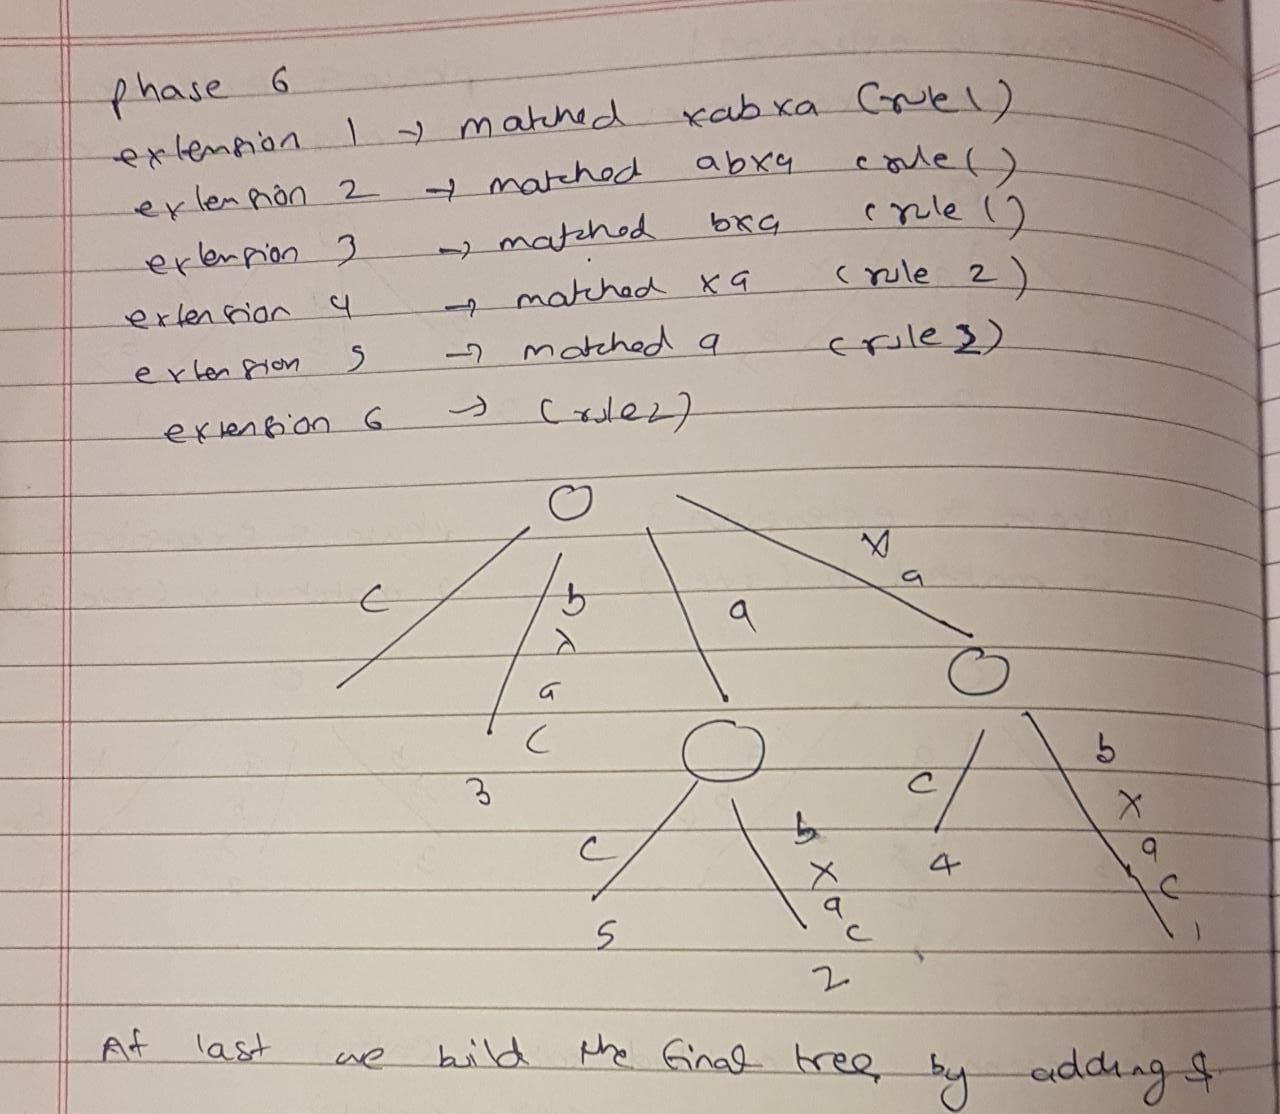 phase 6
extension 1 → matched xabxa (rule 1)
extension 2 → matched abxa (rule 1)
extension 3 → matched bxa (rule 1)
extension 4 → matched xa (rule 2)
extension 5 → matched a (rule 2)
extension 6 → (rule 2)
x
a
c b a
x
a
c
b
3 c x
c b 4 a
x c
a 1
5 c
2
At last we build the final tree by adding $